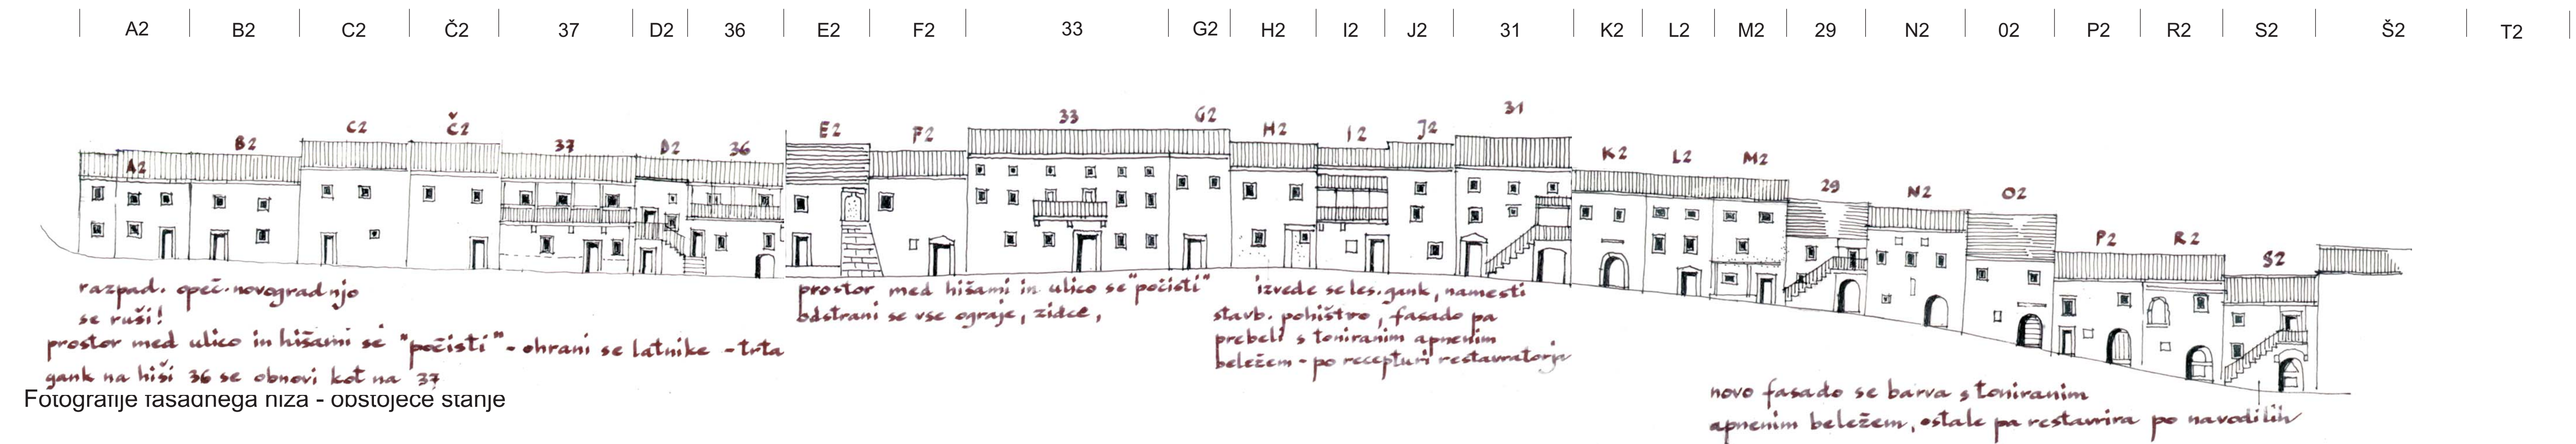 A2 B2 C2 Č2 37 D2 36 E2 F2 33 G2 H2 I2 J2 31 K2 L2 M2 29 N2 02 P2 R2 S2 Š2 T2
A2 B2 C2 Č2 37 D2 36 E2 F2 33 G2 H2 I2 J2 31 K2 L2 M2 29 N2 O2 P2 R2 S2
razpad. opeč. novogradnjo
se ruši!
prostor med ulico in hišami se "počisti" - ohrani se latnike - trta
gank na hiši 36 se obnovi kot na 37
prostor med hišami in ulico se "počisti"
odstrani se vse ograje, zidce,
izvede se les. gank, namesti
stavb. pohištvo, fasado pa
prebeli s toniranim apnenim
beležem - po recepturi restavratorja
novo fasado se barva s toniranim
apnenim beležem, ostale pa restavrira po navodilih
Fotografije fasadnega niza - obstoječe stanje